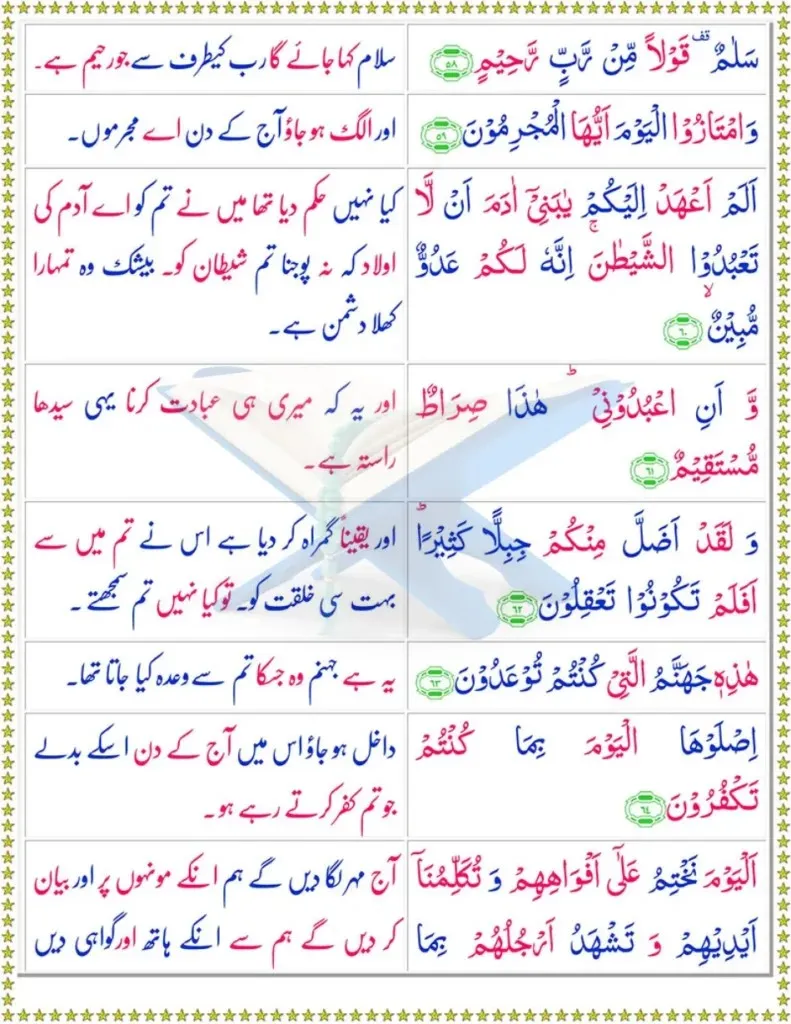 سَلٰمٌ ۟ قَوۡلًا مِّنۡ رَّبٍّ رَّحِيۡمٍ ﴿۵۸﴾
سلام کہا جائے گا رب کیطرف سے جو رحیم ہے۔
وَامۡتَازُوا الۡيَوۡمَ اَيُّهَا الۡمُجۡرِمُوۡنَ ﴿۵۹﴾
اور الگ ہو جاؤ آج کے دن اے مجرموں۔
اَلَمۡ اَعۡهَدۡ اِلَيۡكُمۡ يٰبَنِىۡۤ اٰدَمَ اَنۡ لَّا
تَعۡبُدُوا الشَّيۡطٰنَ‌ۚ اِنَّهٗ لَـكُمۡ عَدُوٌّ
مُّبِيۡنٌ ۙ ﴿۶۰﴾
کیا نہیں حکم دیا تھا میں نے تم کو اے آدم کی
اولاد کہ نہ پوجنا تم شیطان کو۔ بیشک وہ تمہارا
کھلا دشمن ہے۔
وَّ اَنِ اعۡبُدُوۡنِىۡ ؕ هٰذَا صِرَاطٌ
مُّسۡتَقِيۡمٌ ﴿۶۱﴾
اور یہ کہ میری ہی عبادت کرنا یہی سیدھا
راستہ ہے۔
وَ لَقَدۡ اَضَلَّ مِنۡكُمۡ جِبِلًّا كَثِيۡرًا ؕ
اَفَلَمۡ تَكُوۡنُوۡا تَعۡقِلُوۡنَ ﴿۶۲﴾
اور یقیناً گمراہ کر دیا ہے اس نے تم میں سے
بہت سی خلقت کو۔ تو کیا نہیں تم سمجھتے۔
هٰذِهٖ جَهَنَّمُ الَّتِىۡ كُنۡتُمۡ تُوۡعَدُوۡنَ ﴿۶۳﴾
یہ ہے جہنم وہ جسکا تم سے وعدہ کیا جاتا تھا۔
اِصۡلَوۡهَا الۡيَوۡمَ بِمَا كُنۡتُمۡ
تَكۡفُرُوۡنَ ﴿۶۴﴾
داخل ہو جاؤ اس میں آج کے دن اسکے بدلے
جو تم کفر کرتے رہے ہو۔
اَلۡيَوۡمَ نَخۡتِمُ عَلٰٓى اَفۡوَاهِهِمۡ وَ تُكَلِّمُنَاۤ
اَيۡدِيۡهِمۡ وَ تَشۡهَدُ اَرۡجُلُهُمۡ بِمَا
آج مہر لگا دیں گے ہم انکے مونہوں پر اور بیان
کر دیں گے ہم سے انکے ہاتھ اور گواہی دیں